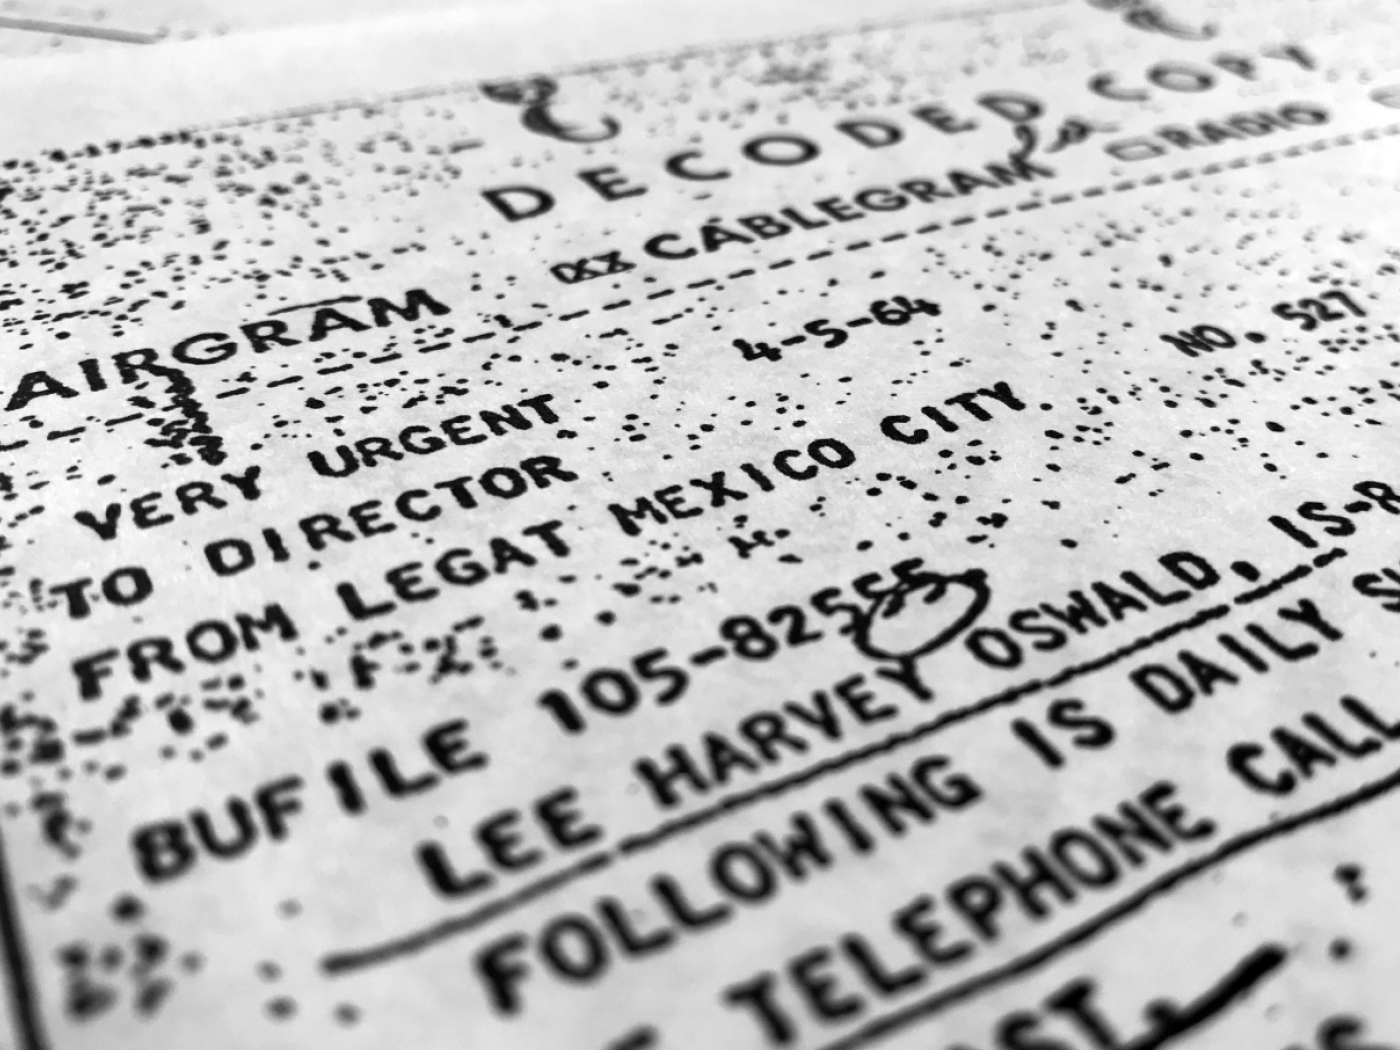 DECODED COPY
AIRGRAM XX CABLEGRAM RADIO
VERY URGENT 4-5-64 NO. 527
TO DIRECTOR
FROM LEGAT MEXICO CITY
BUFILE 105-82555
LEE HARVEY OSWALD, IS-R
FOLLOWING IS DAILY
TELEPHONE CALL